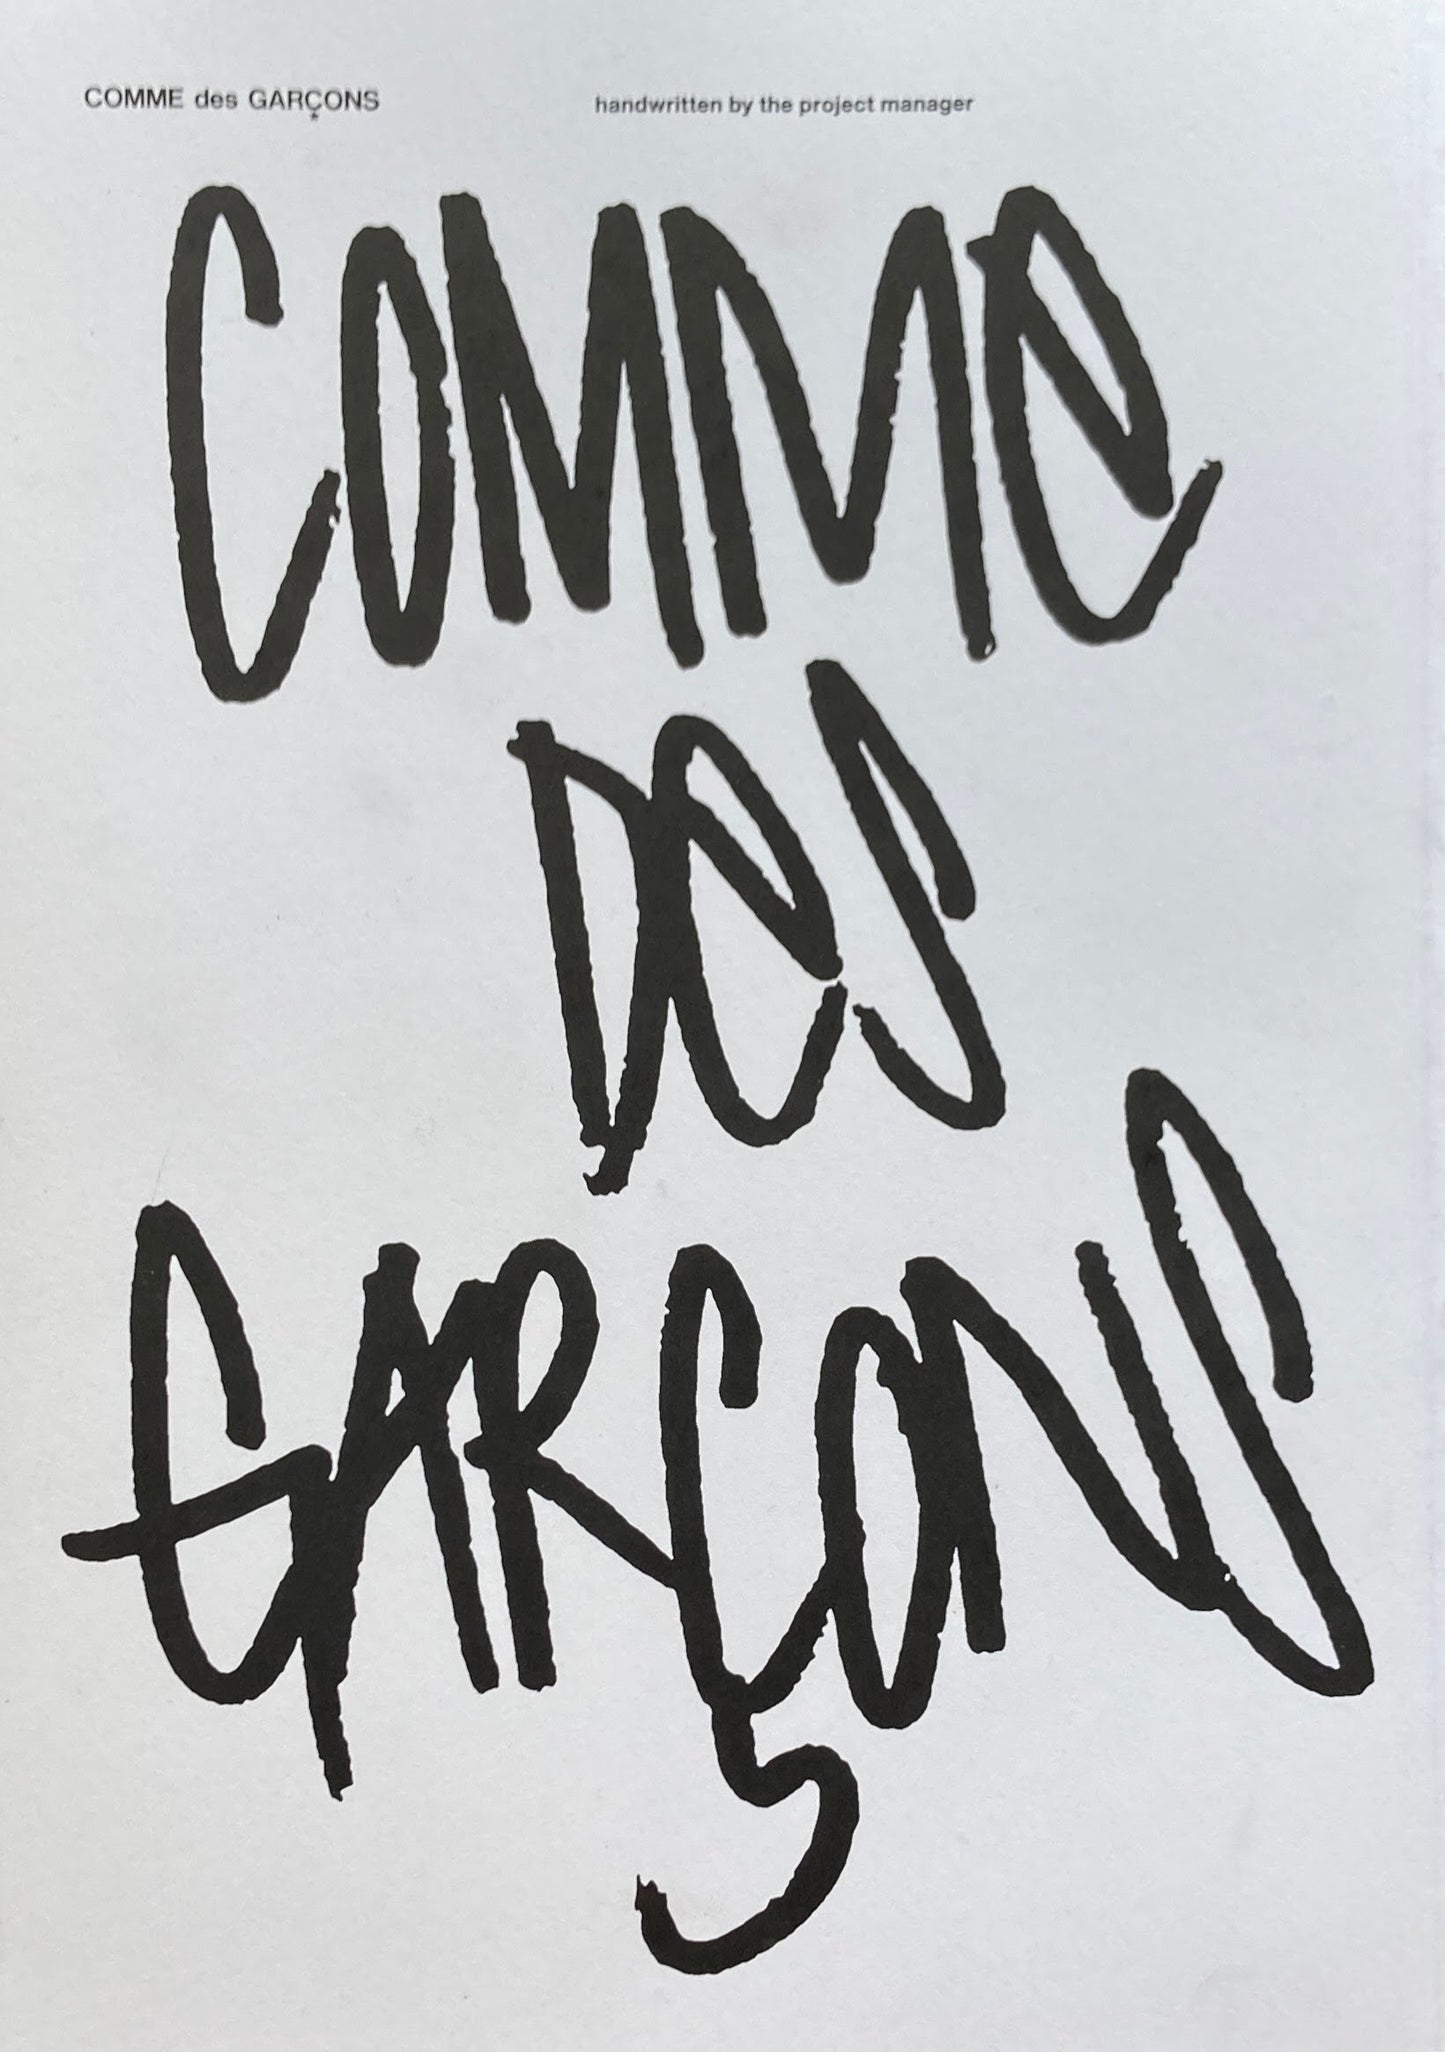 COMME des GARÇONS
handwritten by the project manager
COMMe
DeS
GARÇONS